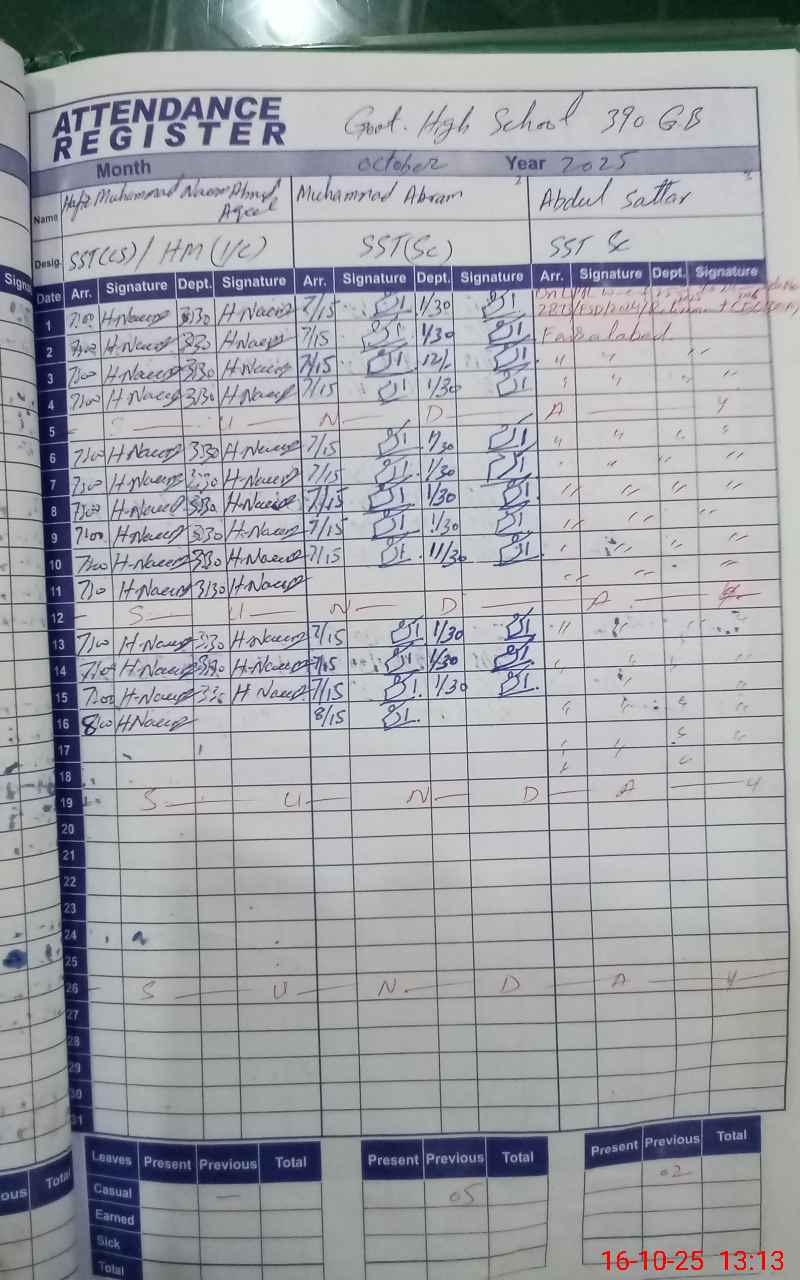 ATTENDANCE
REGISTER
Govt. High School 390 GB
Month October Year 2025
Name Hafiz Muhammad Naeem Ahmad Aqeel Muhammad Akram Abdul Sattar
Desig. SST(CS) / HM (I/C) SST(Sc) SST Sc
Date Arr. Signature Dept. Signature Arr. Signature Dept. Signature Arr. Signature Dept. Signature
1 7:00 H-Naeem 3:30 H-Naeem 7/15 1/30
2 7:00 H-Naeem 3:30 H-Naeem 7/15 1/30 Faisalabad
3 7:00 H-Naeem 3:30 H-Naeem 7/15 12/ " " "
4 7:00 H-Naeem 3:30 H-Naeem 7/15 1/30 " " " "
5 S U N D A Y
6 7:00 H-Naeem 3:30 H-Naeem 7/15 1/30 " " " "
7 7:00 H-Naeem 3:30 H-Naeem 7/15 1/30 " " "
8 7:00 H-Naeem 3:30 H-Naeem 7/15 1/30 " " " "
9 7:00 H-Naeem 3:30 H-Naeem 7/15 1/30 " " "
10 7:00 H-Naeem 3:30 H-Naeem 7/15 11/30 " " " "
11 7:00 H-Naeem 3:30 H-Naeem " " "
12 S U N D A Y
13 7:00 H-Naeem 3:30 H-Naeem 7/15 1/30 " " "
14 7:00 H-Naeem 3:30 H-Naeem 7/15 1/30 " " " "
15 7:00 H-Naeem 3:30 H-Naeem 7/15 1/30 " "
16 8:00 H-Naeem 8/15 " " " "
17 " " " "
18 " "
19 S U N D A Y
20
21
22
23
24
25
26 S U N D A Y
27
28
29
30
31
Leaves Present Previous Total Present Previous Total Present Previous Total
Casual — 05 02
Earned
Sick
Total
16-10-25 13:13